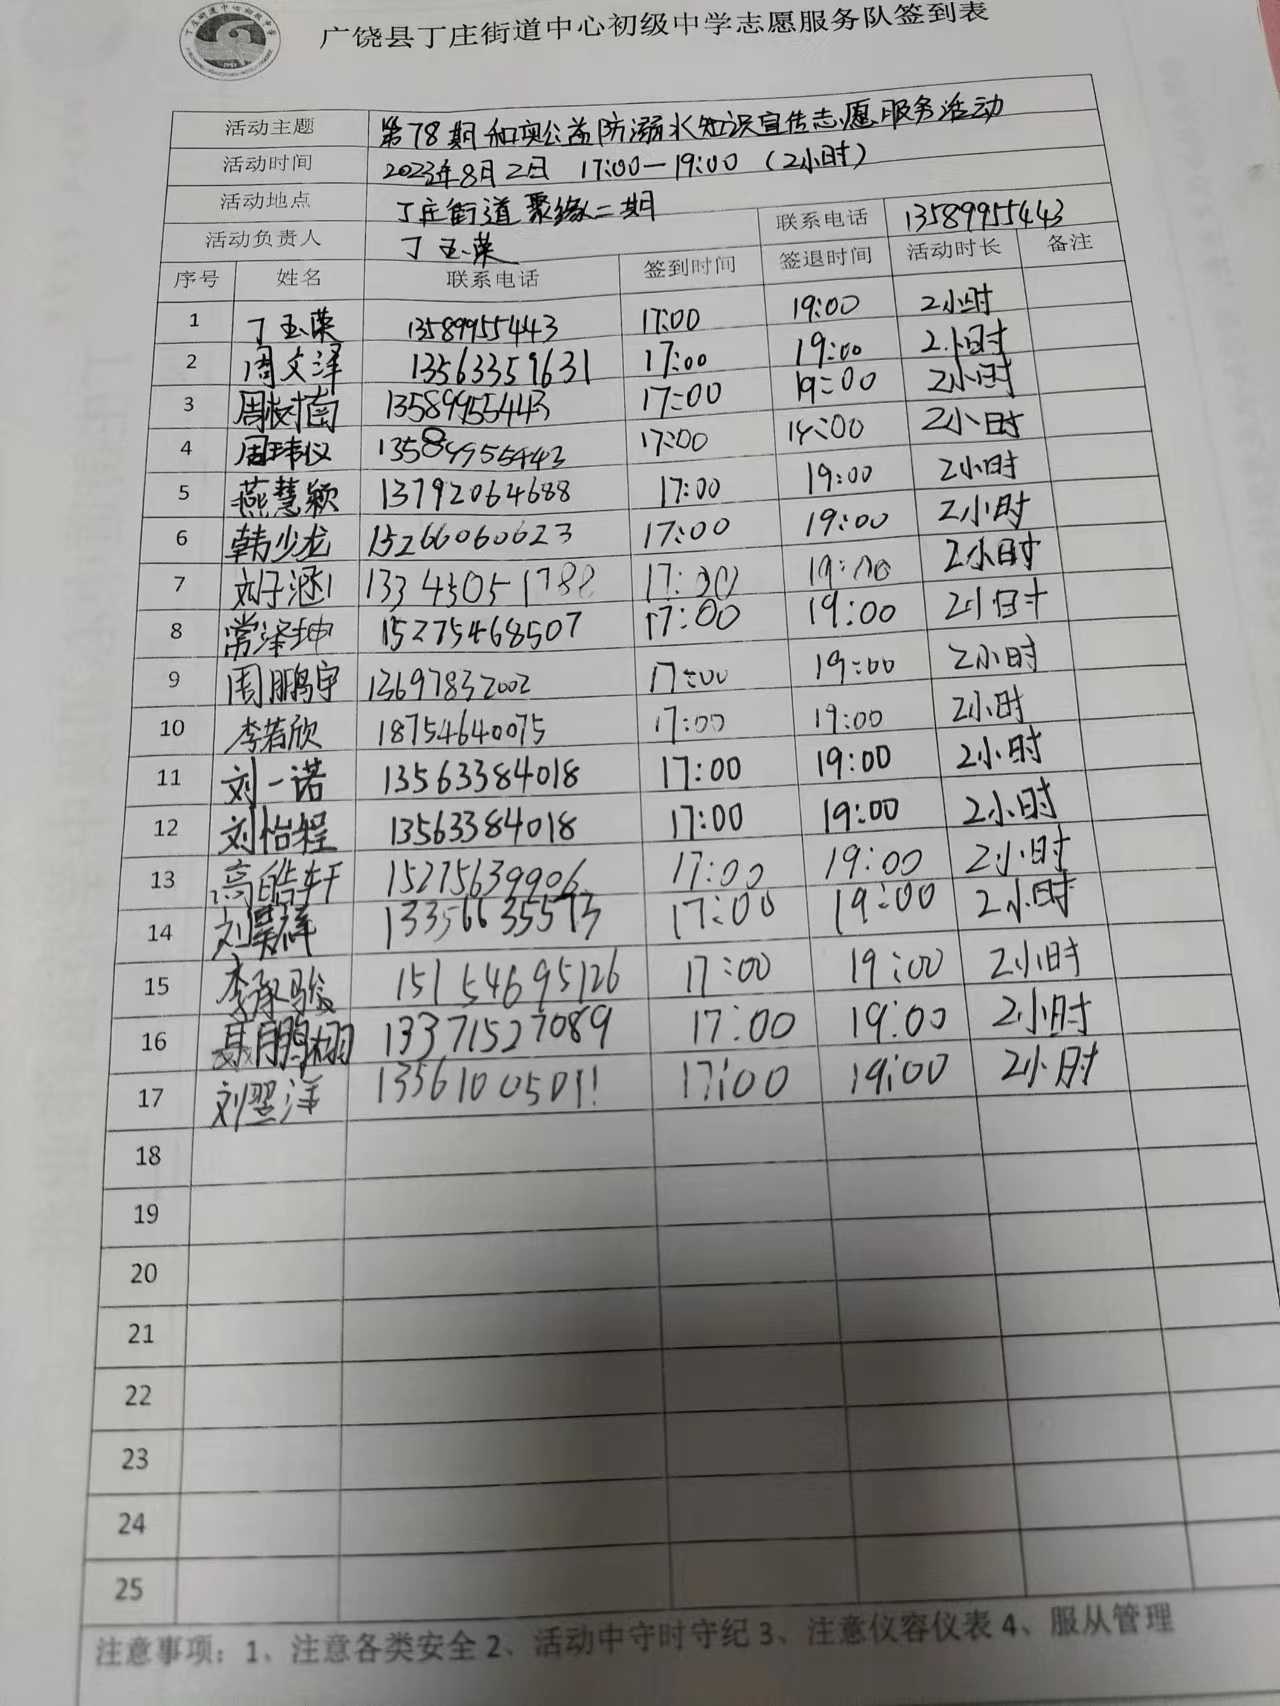 广饶县丁庄街道中心初级中学志愿服务队签到表
活动主题 第78期和美公益防溺水知识宣传志愿服务活动
活动时间 2023年8月2日 17:00—19:00（2小时）
活动地点 丁庄街道聚缘二期
活动负责人 丁玉荣 联系电话 13589955443
序号 姓名 联系电话 签到时间 签退时间 活动时长 备注
1 丁玉荣 13589955443 17:00 19:00 2小时
2 周文泽 13563359631 17:00 19:00 2小时
3 周树南 13589955443 17:00 19:00 2小时
4 周玮仪 13589955443 17:00 19:00 2小时
5 燕慧颖 13792064688 17:00 19:00 2小时
6 韩少龙 15266060623 17:00 19:00 2小时
7 刘子涵 13345051788 17:00 19:00 2小时
8 常泽坤 15275468507 17:00 19:00 2小时
9 周鹏宇 13697832002 17:00 19:00 2小时
10 李若欣 18754640075 17:00 19:00 2小时
11 刘一诺 13563384018 17:00 19:00 2小时
12 刘怡程 13563384018 17:00 19:00 2小时
13 高皓轩 15275639906 17:00 19:00 2小时
14 刘昊祥 13356635573 17:00 19:00 2小时
15 李承骏 15154695126 17:00 19:00 2小时
16 13371527089 17:00 19:00 2小时
17 刘翌洋 13561005011 17:00 19:00 2小时
18
19
20
21
22
23
24
25
注意事项：1、注意各类安全 2、活动中守时守纪 3、注意仪容仪表 4、服从管理